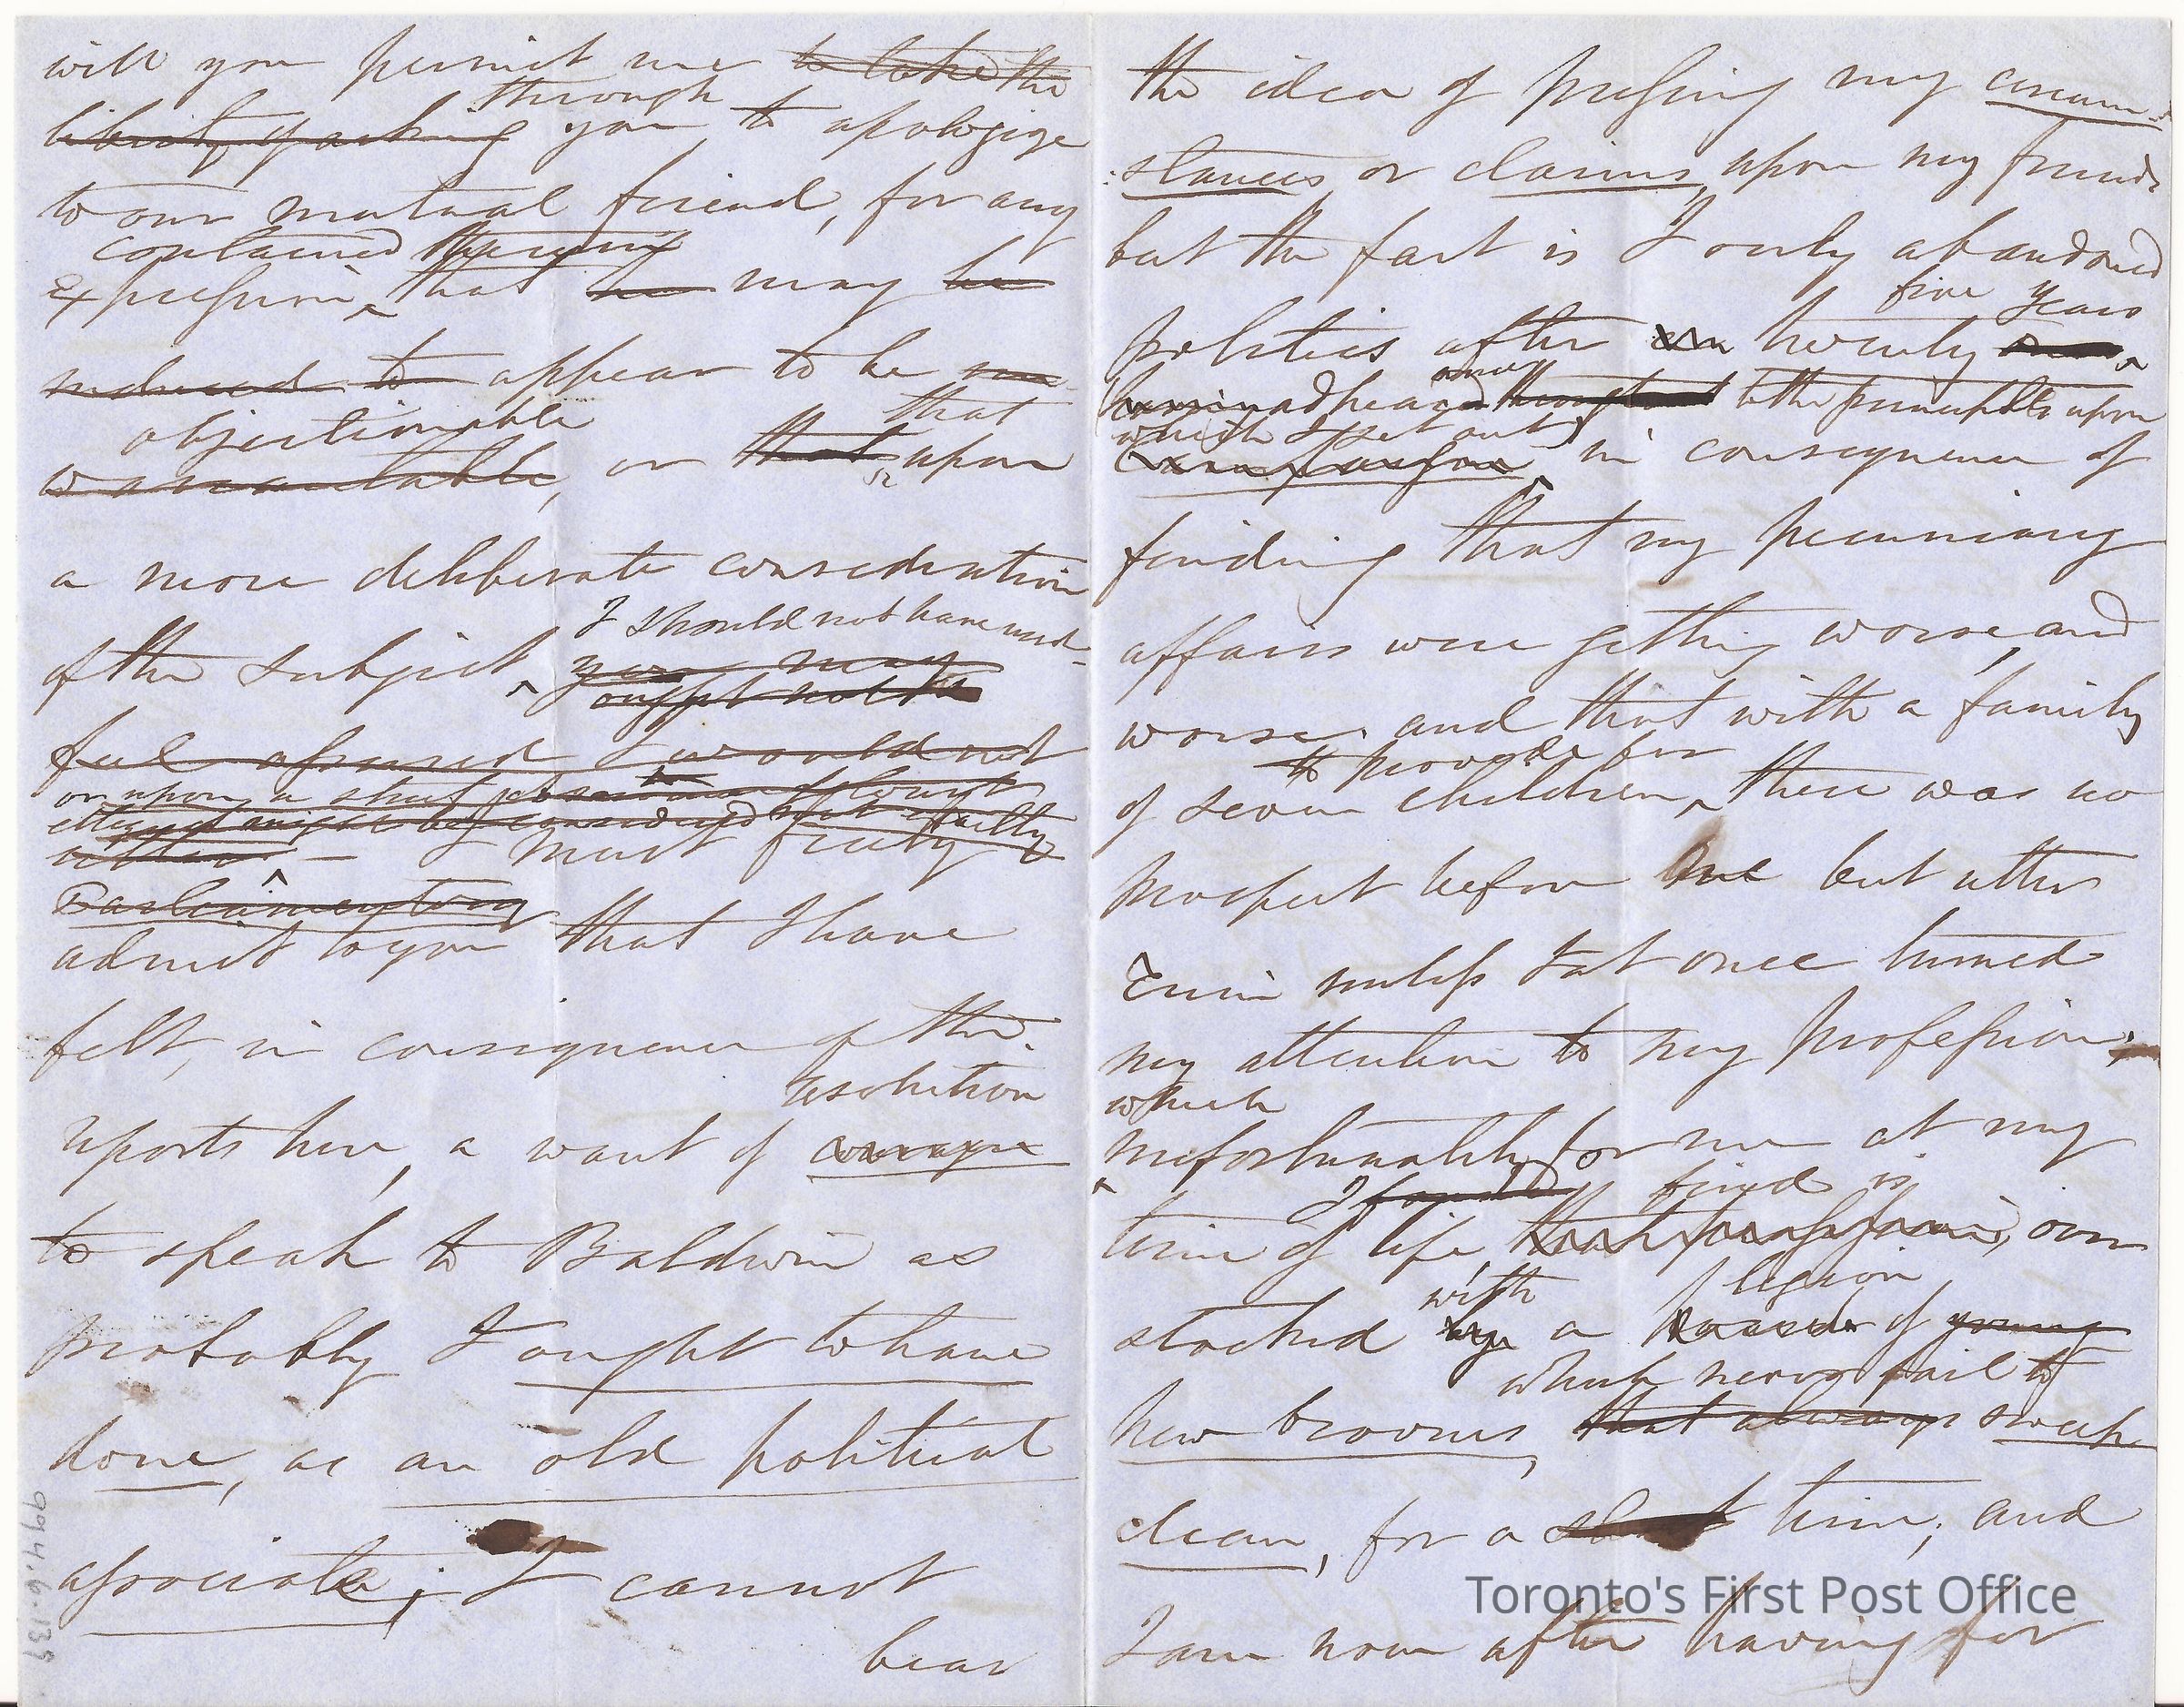 will you permit me to take the
through
liberty of asking you, to apologize
to our mutual friend, for any
contained therein
Expression, that he may be
induced to appear to be un
objectionable that
warrantable, or that upon
a more deliberate consideration
I should not have used
of the subject you may
ought not to
feel assured I would not
or upon a strict
utter — I must freely
Parliamentary
admit to you that I have
felt, in consequence of the
resolution
reports here, a want of courage
to speak to Baldwin as
probably I ought to have
done, as an old political
associate; I cannot
bear
the idea of pressing my circum
:stances, or claims, upon my friends
but the fact is I only abandoned
five years
politics after twenty
once
having adhered throughout to the principles upon
which I set out)
in consequence of
finding that my pecuniary
affairs were getting worse, and
worse, and that with a family
to provide for
of seven children, there was no
prospect before me but utter
Ruin unless I at once turned
my attention to my profession,
which
unfortunately for me at my
I found find is
time of life, that profession, over
with legion
stocked by a of young
which never fail to
new brooms, that always sweep
clean, for a short time; and
I am now after having for
994.6.139
Toronto's First Post Office